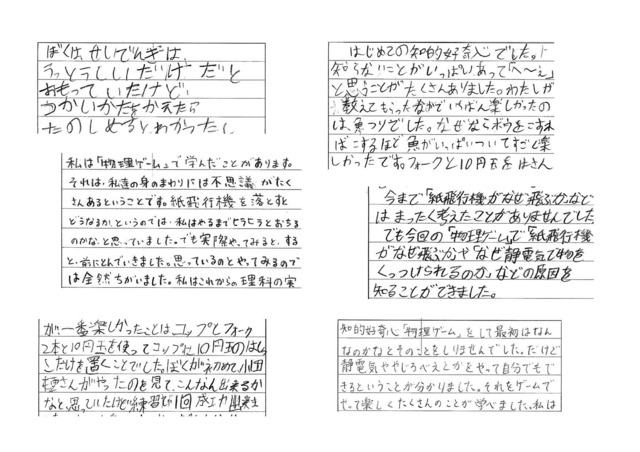 ぼくは せいでんきは、
うっとうしいだけ だと
おもって いたけど
つかいかたをかえたら
たのしめるとわかったし
はじめての知的好奇心でした。
知らないことがいっぱいあって「へ〜ぇ」
と思うことがたくさんありました。わたしが
教えてもらったなかでいちばん楽しかったの
は、魚つりでした。なぜならボウをこすれ
ばこするほど魚がいっぱいついてすごく楽
しかったです。フォークと10円玉をはさん
私は「物理ゲーム」で学んだことがあります。
それは、私達の身のまわりには不思議がたく
さんあるということです。紙飛行機を落とすと
どうなるか、というのでは、私はやるまでヒラヒラとおちる
のかな、と思っていました。でも実際やってみると、する
と、前にとんでいきました。思っているのとやってみるので
は全然ちがいました。私はこれからの理科の実
今まで「紙飛行機がなぜ飛ぶか」など
はまったく考えたことがありませんでした
でも今回の「物理ゲーム」で「紙飛行機
がなぜ飛ぶか」や「なぜ静電気で物を
くっつけられるのか」などの原因を
知ることができました。
が一番楽しかったことは、コップとフォーク
2本と10円玉を使ってコップに10円玉のはし
こだけを置くことでした。ぼくが初めて小田
垣さんがやったのを見て、こんなん出来るか
なと、思っていたけど練習で1回成工力出来ま
知的好奇心「物理ゲーム」をして最初はなん
なのかなとそのことをしりませんでした。だけど
静電気ややじろべえとかをやって自分でもで
きるということが分かりました。それをゲームで
やって楽しくたくさんのことが学べました。私は